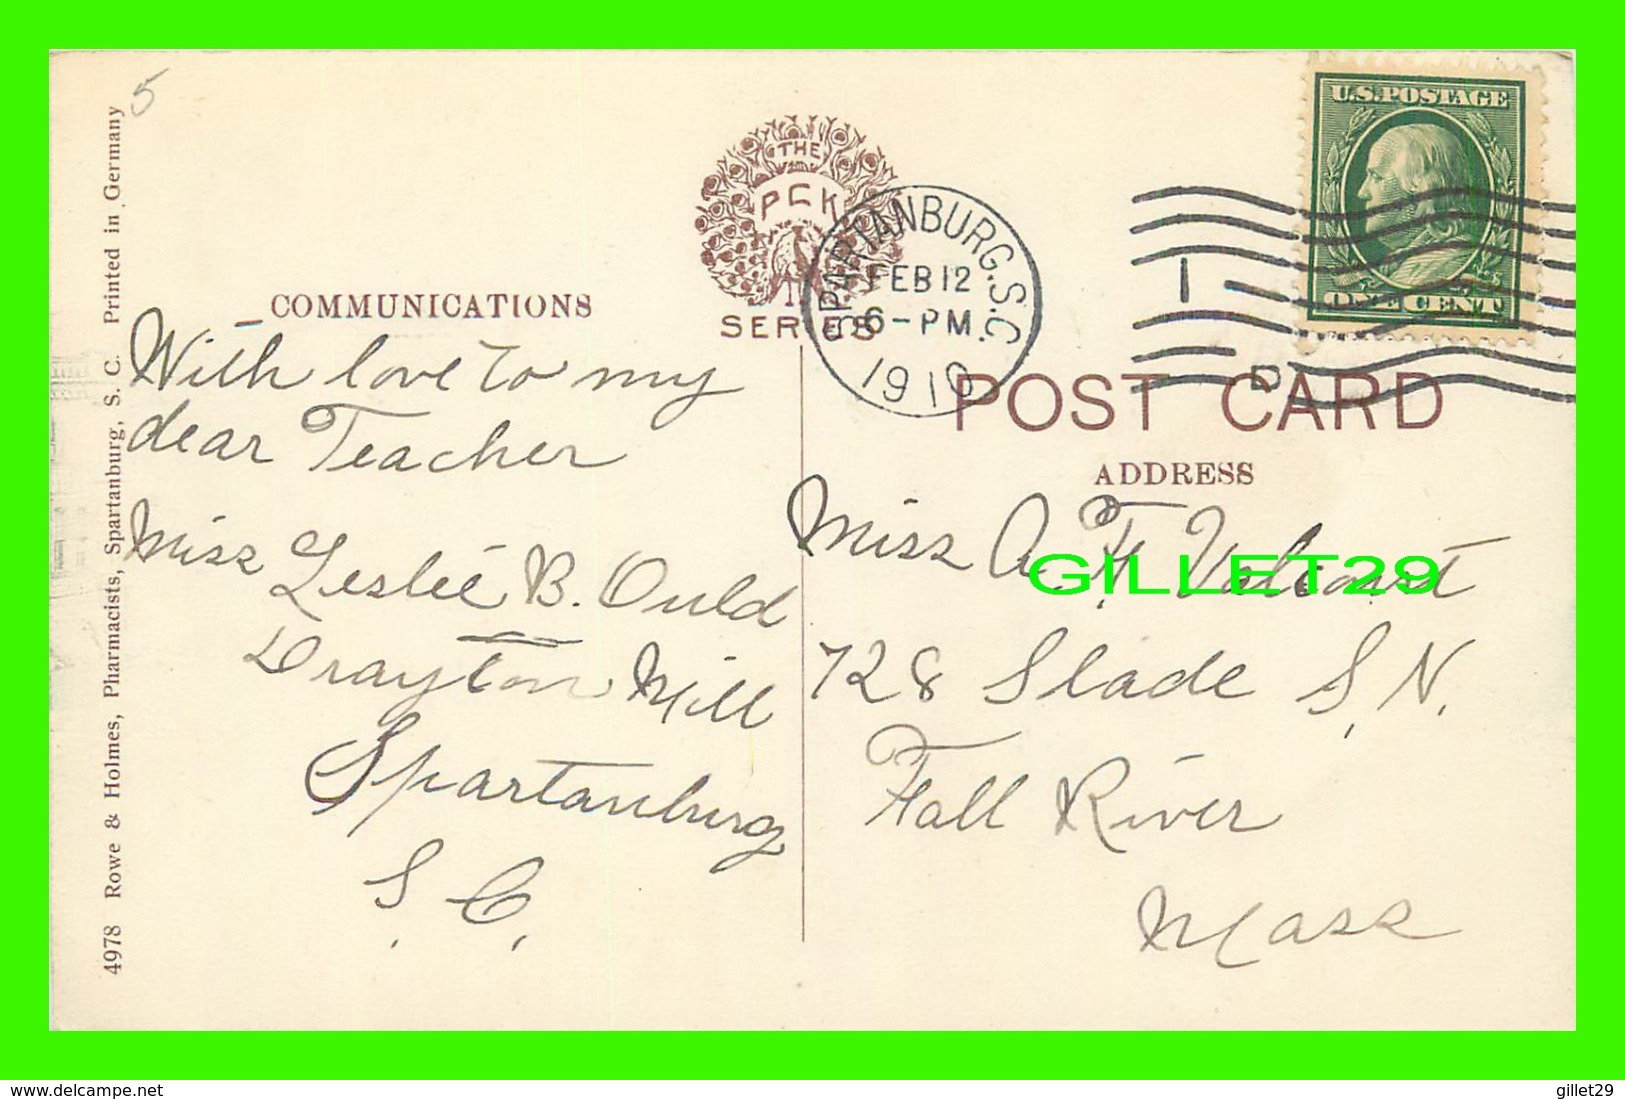 5
4978 Rowe & Holmes, Pharmacists, Spartanburg, S. C. Printed in Germany
THE
PCK
SERIES
COMMUNICATIONS
With love to my
dear Teacher
Miss Leslie B. Ould
Drayton Mill
Spartanburg
S. C.
SPARTANBURG. S.C.
FEB 12
6-PM
1910
1
D
U.S. POSTAGE
ONE CENT
POST CARD
ADDRESS
Miss A. F.
728 Slade S. N.
Fall River
Mass
GILLET29
www.delcampe.net
gillet29